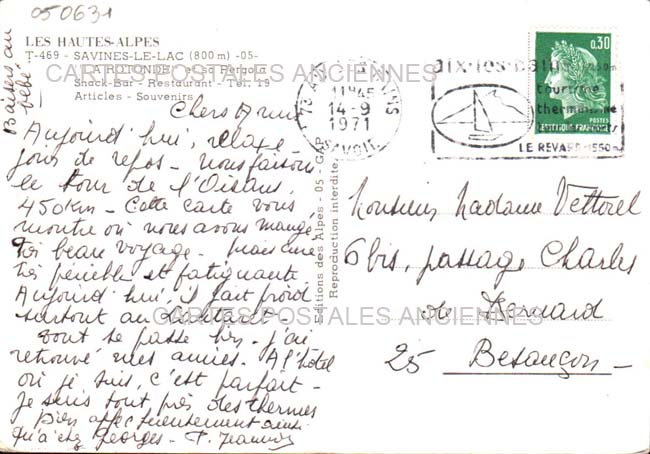 050631
LES HAUTES-ALPES
T-469 - SAVINES-LE-LAC (800 m) -05-
LA ROTONDE et sa Pergola
Snack-Bar - Restaurant - Tél. 19
Articles - Souvenirs
Baisers au
bébé
Chers Amis
Aujourd'hui, relaxe -
jour de repos - Nous faisons
le tour de l'Oisans,
450 km - Cette carte vous
montre où nous avons mangé
Très beau voyage - mais
Très pénible et fatiguante
Aujourd'hui, il fait froid
surtout au
Tout se passe bien - j'ai
retrouvé mes amies. A l'hôtel
où je suis, c'est parfait -
je suis tout près des thermes
Bien affectueusement ainsi
qu'à chez Georges -
Editions des Alpes - 05 - GAP
Reproduction interdite
73 AIX-LES-BAINS
11H45
14-9
1971
SAVOIE
aix-les-bains
tourisme
thermalisme
LE REVARD 1550m
0,30
POSTES
REPUBLIQUE FRANCAISE
Monsieur Madame Vettorel
6 bis, passage Charles
de Bernard
25 Besançon -
CARTES POSTALES ANCIENNES
CARTES POSTALES ANCIENNES